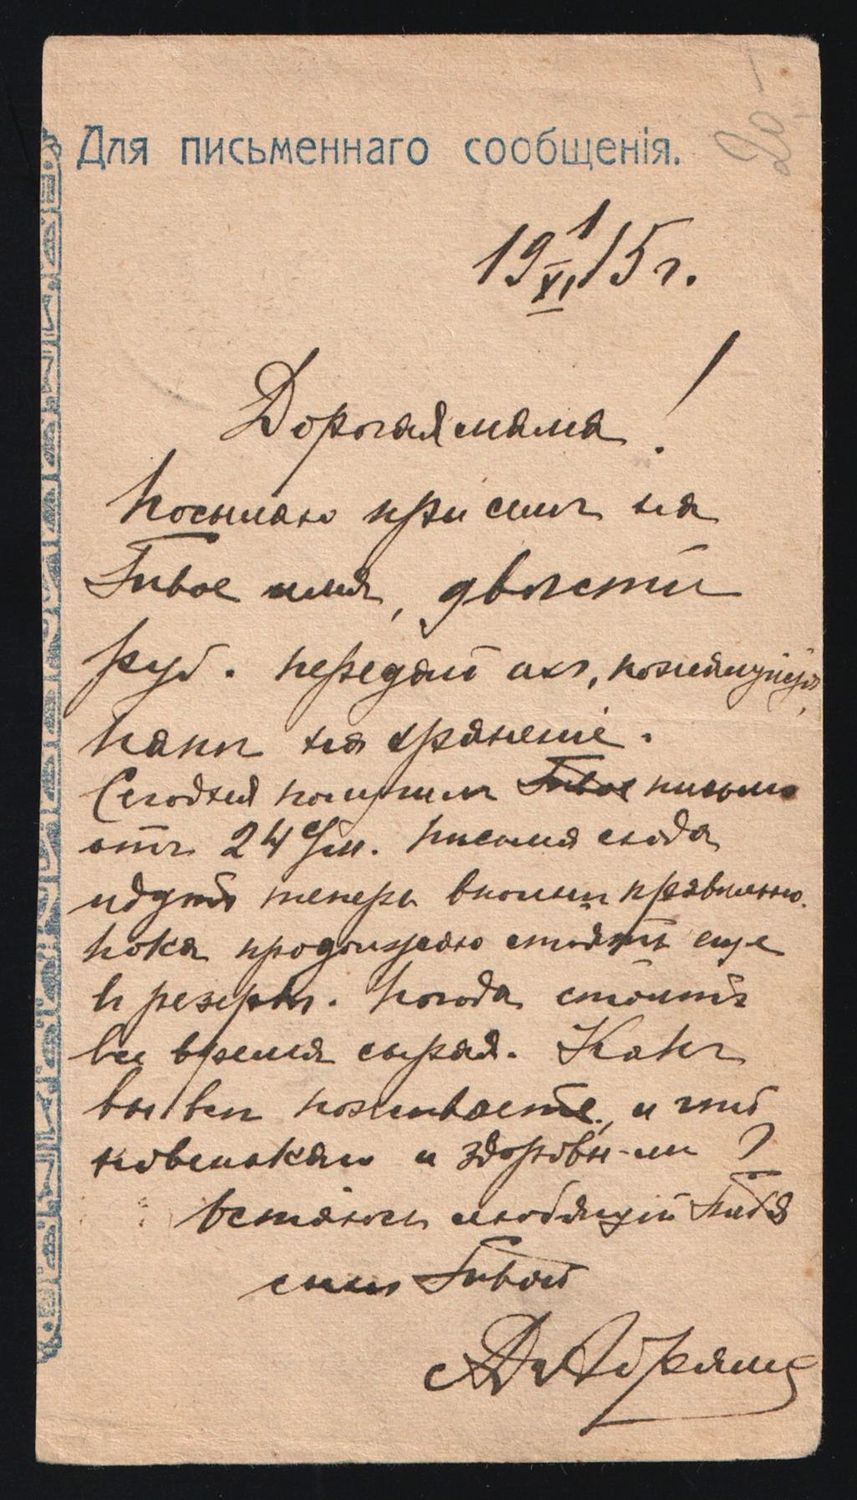 20-
Для письменнаго сообщенія.
19 1/XI 15 г.
Дорогая мама!
Посылаю при семъ на
Твое имя, двѣсти
руб. передай ихъ, пожалуйста,
папѣ на храненіе.
Сегодня получилъ Твое письмо
отъ 24 с/м. Письма сюда
идутъ теперь вполнѣ правильно.
Пока продолжаю стоять еще
въ резервѣ. Погода стоитъ
все время сырая. Какъ
вы всѣ поживаете, и что
новенькаго и здоровы-ли?
Остаюсь любящій Тебя
сынъ Твой